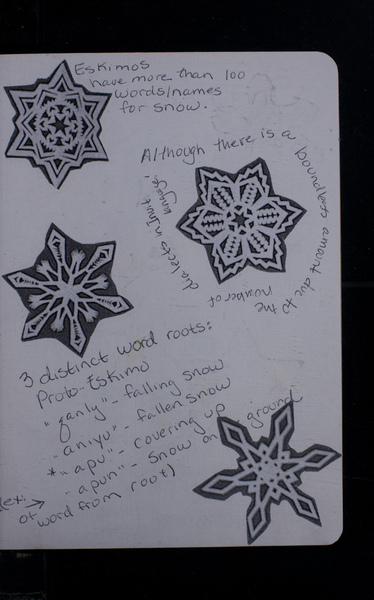 Eskimos
have more than 100
words/names
for snow.
Although there is a boundless amount due to the number of dialects in Inuit language!
3 distinct word roots:
Proto-Eskimo
"qanly" - falling snow
"aniyu" - fallen snow
* "apu" - covering up
"apun" - snow on ground
(lex: →
of word from root)